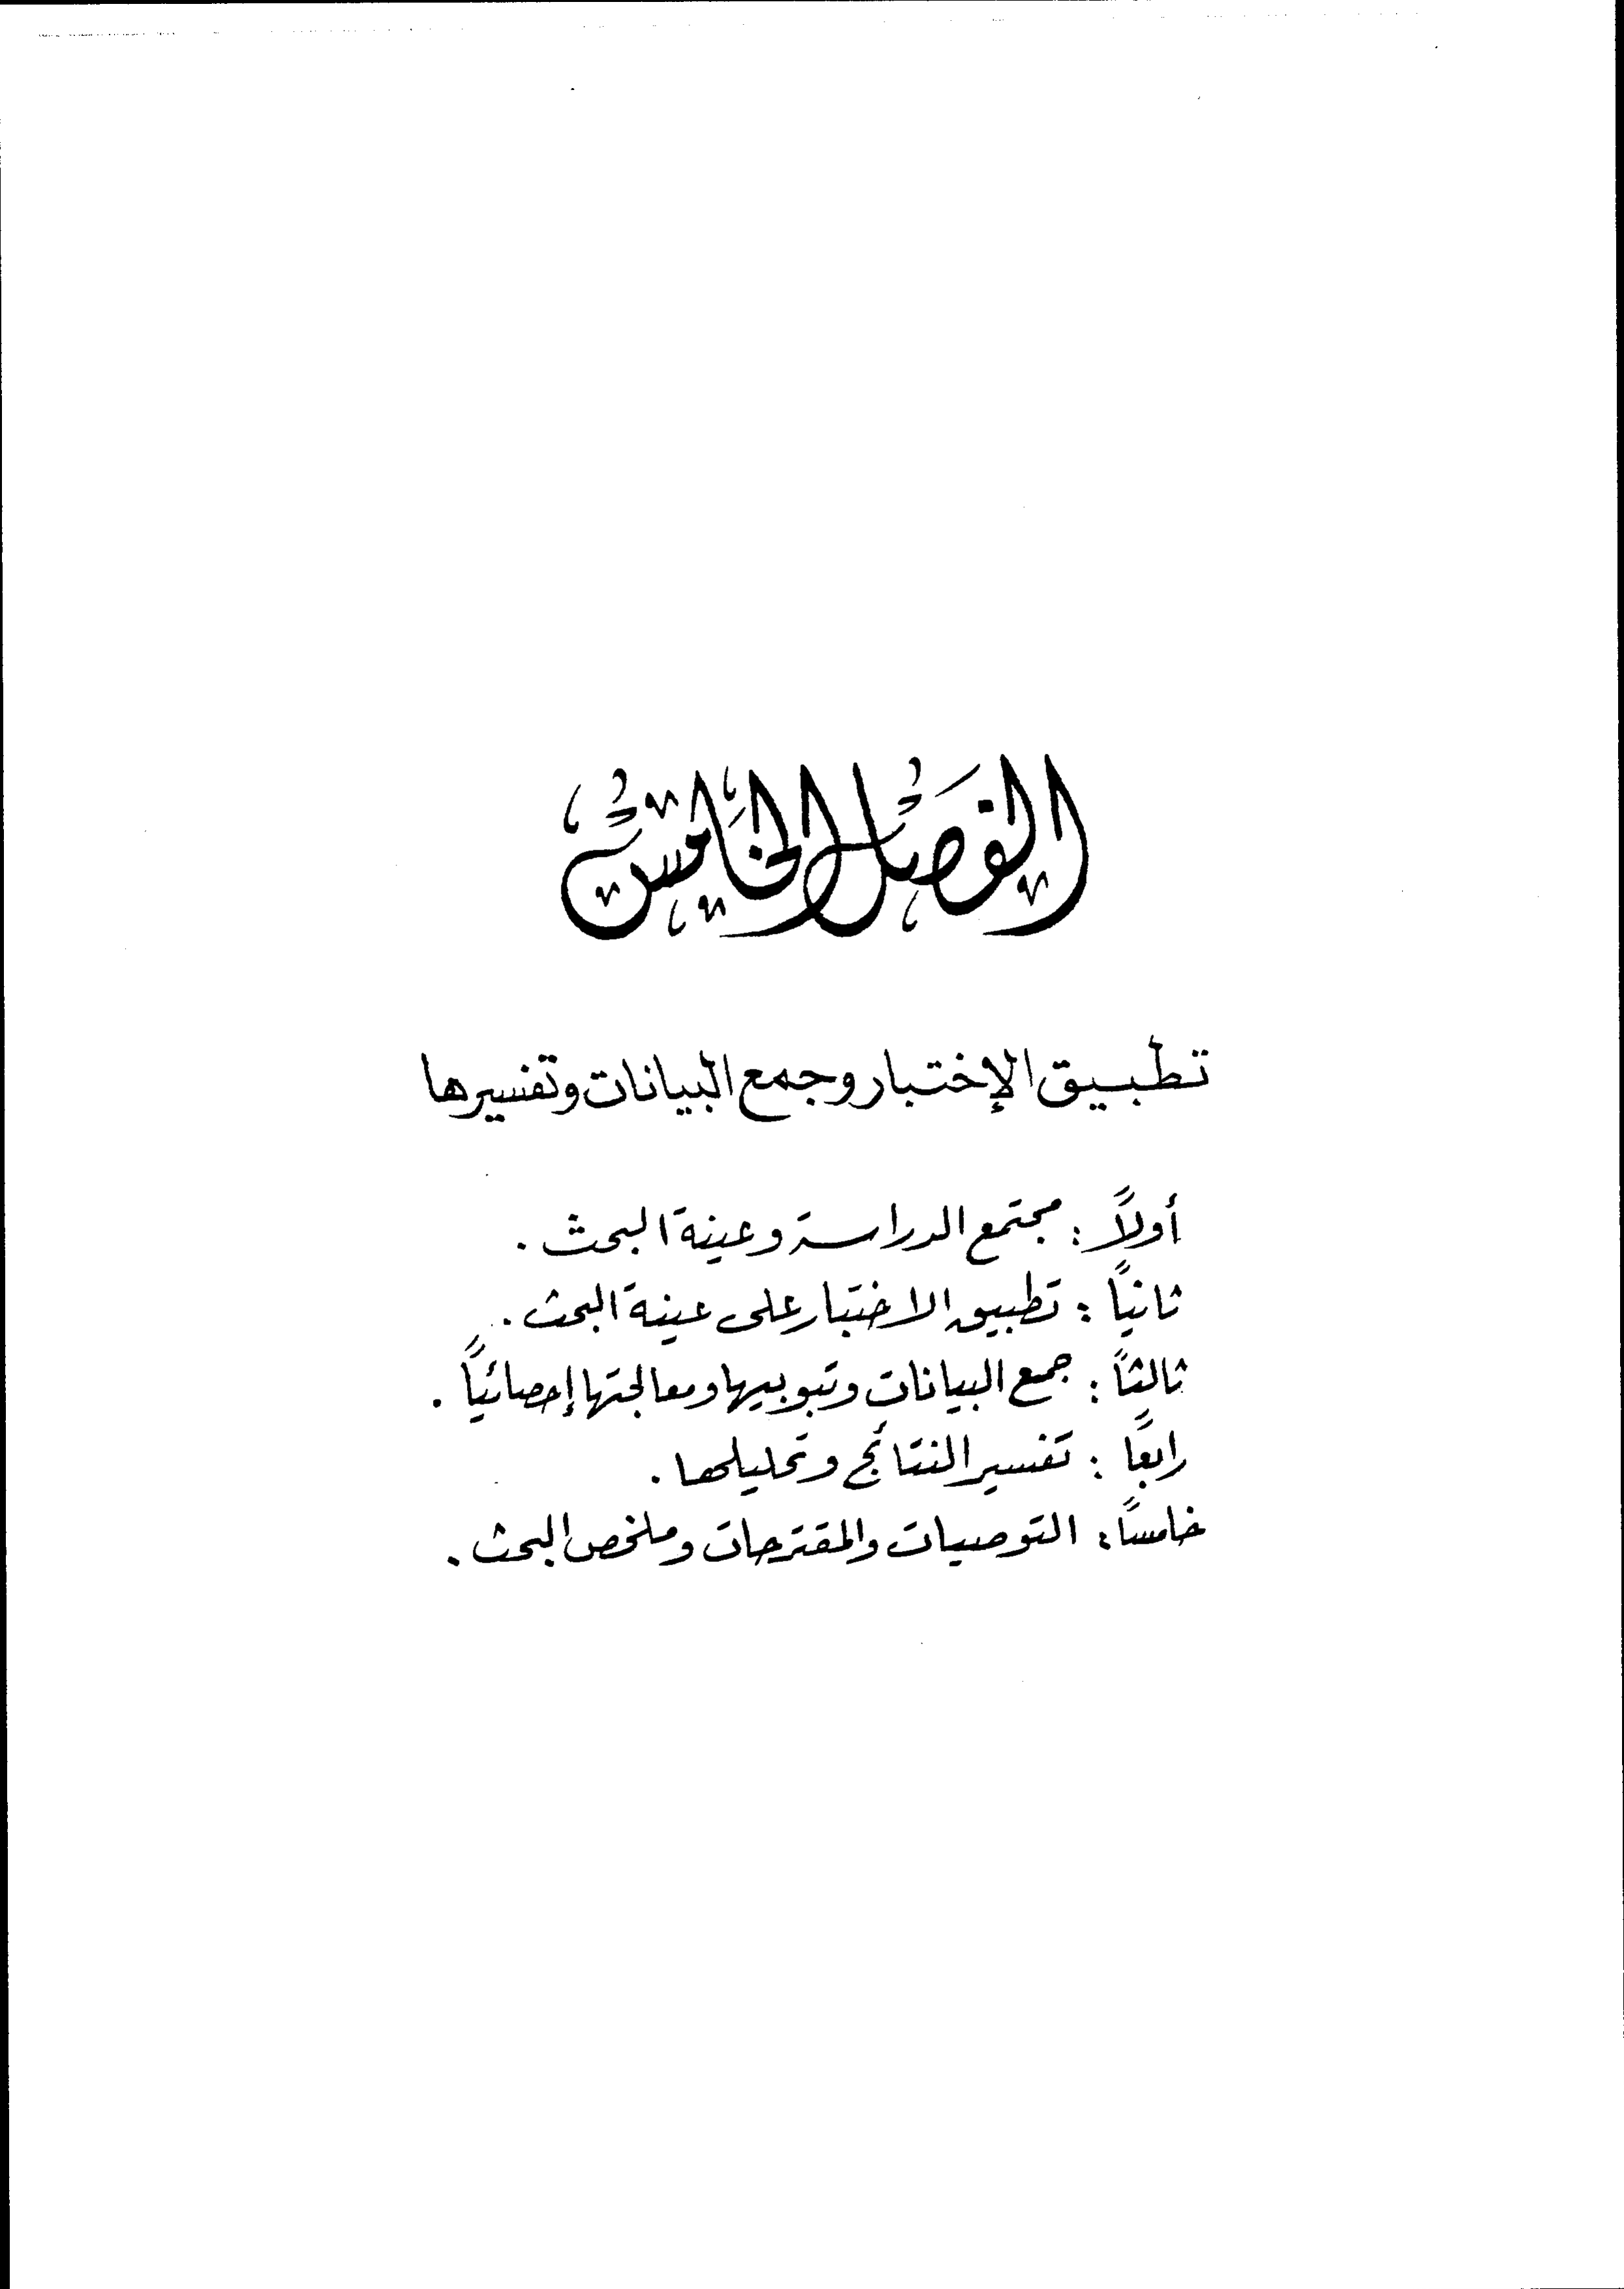 الفصل الخامس
تطبيق الإختبار وجمع البيانات وتفسيرها
أولاً : مجتمع الدراسة وعينة البحث .
ثانياً : تطبيق الاختبار على عينة البحث .
ثالثاً : جمع البيانات وتبويبها ومعالجتها إحصائياً .
رابعاً : تفسير النتائج وتحليلها .
خامساً : التوصيات والمقترحات وملخص البحث .